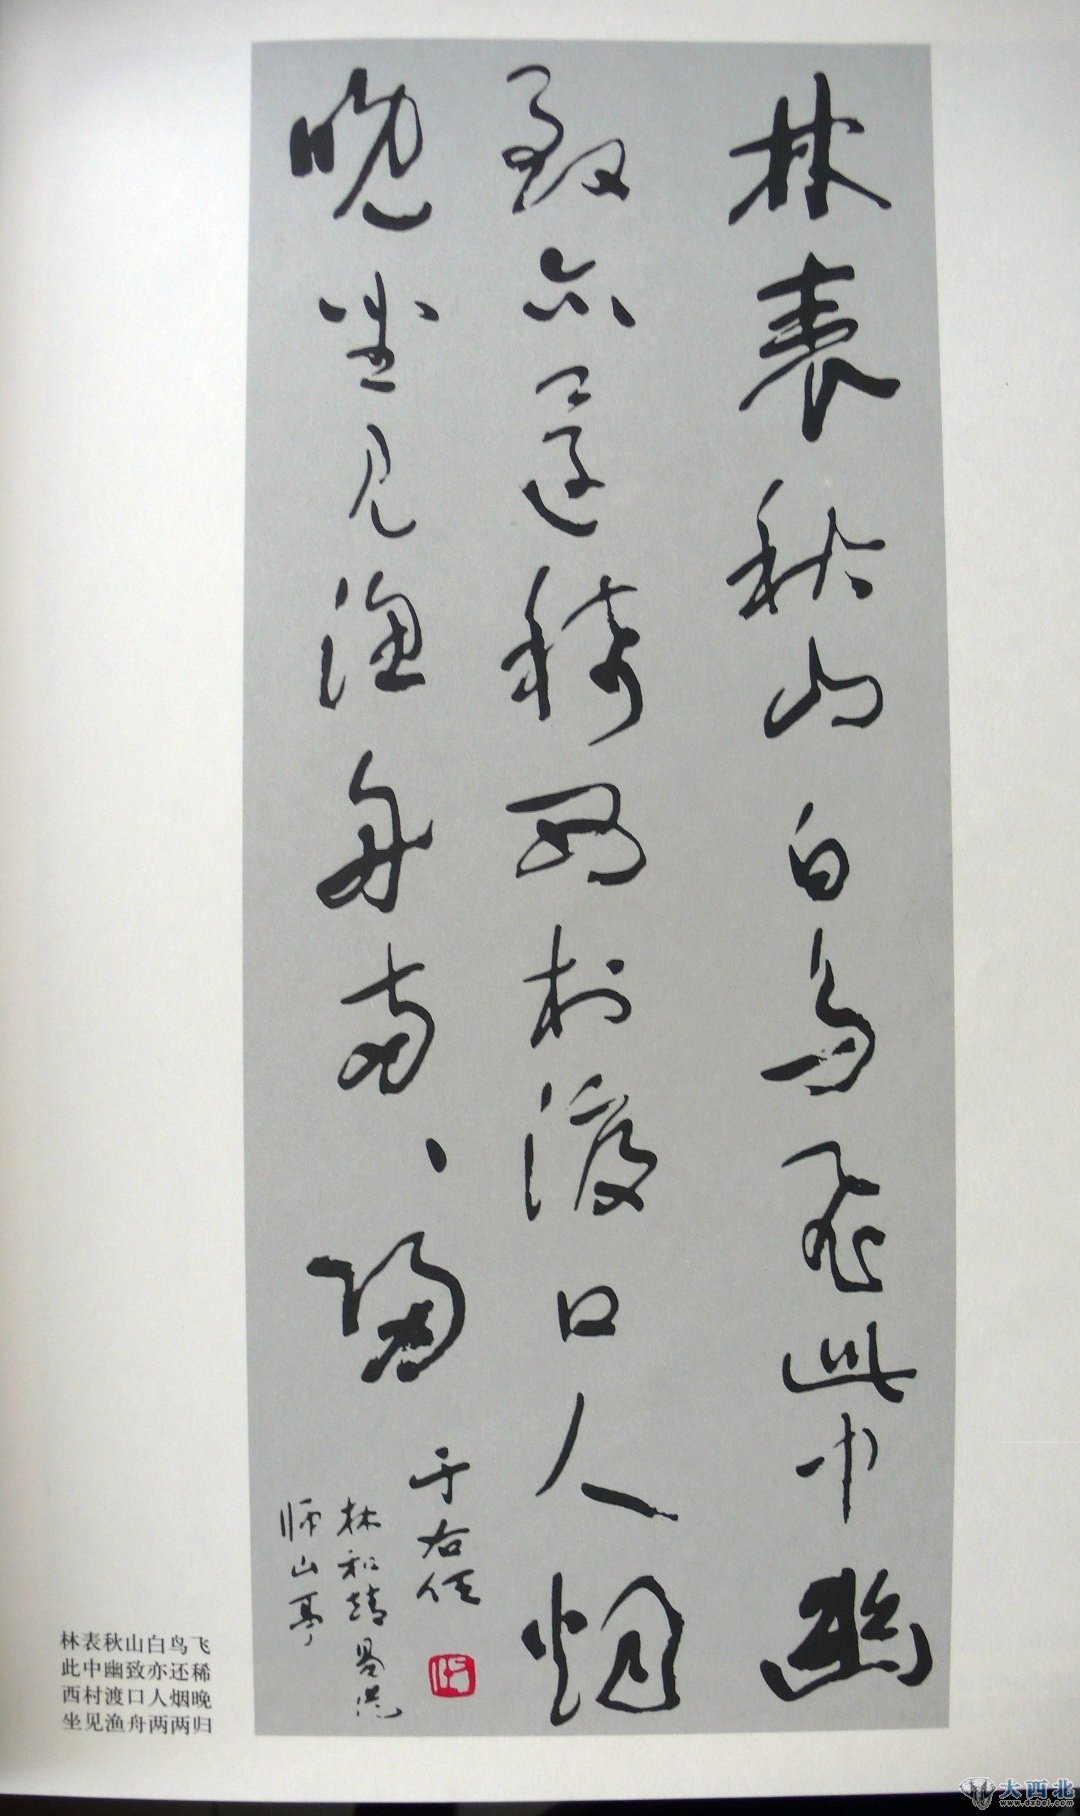 林表秋山白鳥飛此中幽
致亦還稀西村渡口人烟
晚坐見漁舟兩、歸
于右任
林和靖易從
師山亭
林表秋山白鸟飞
此中幽致亦还稀
西村渡口人烟晚
坐见渔舟两两归
大西北
www.dxbei.com